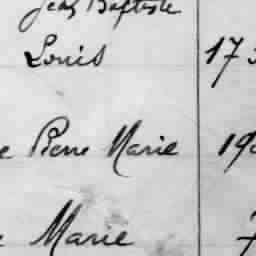 Jean Baptiste
Louis 173
e Pierre Marie 190
e Marie 7